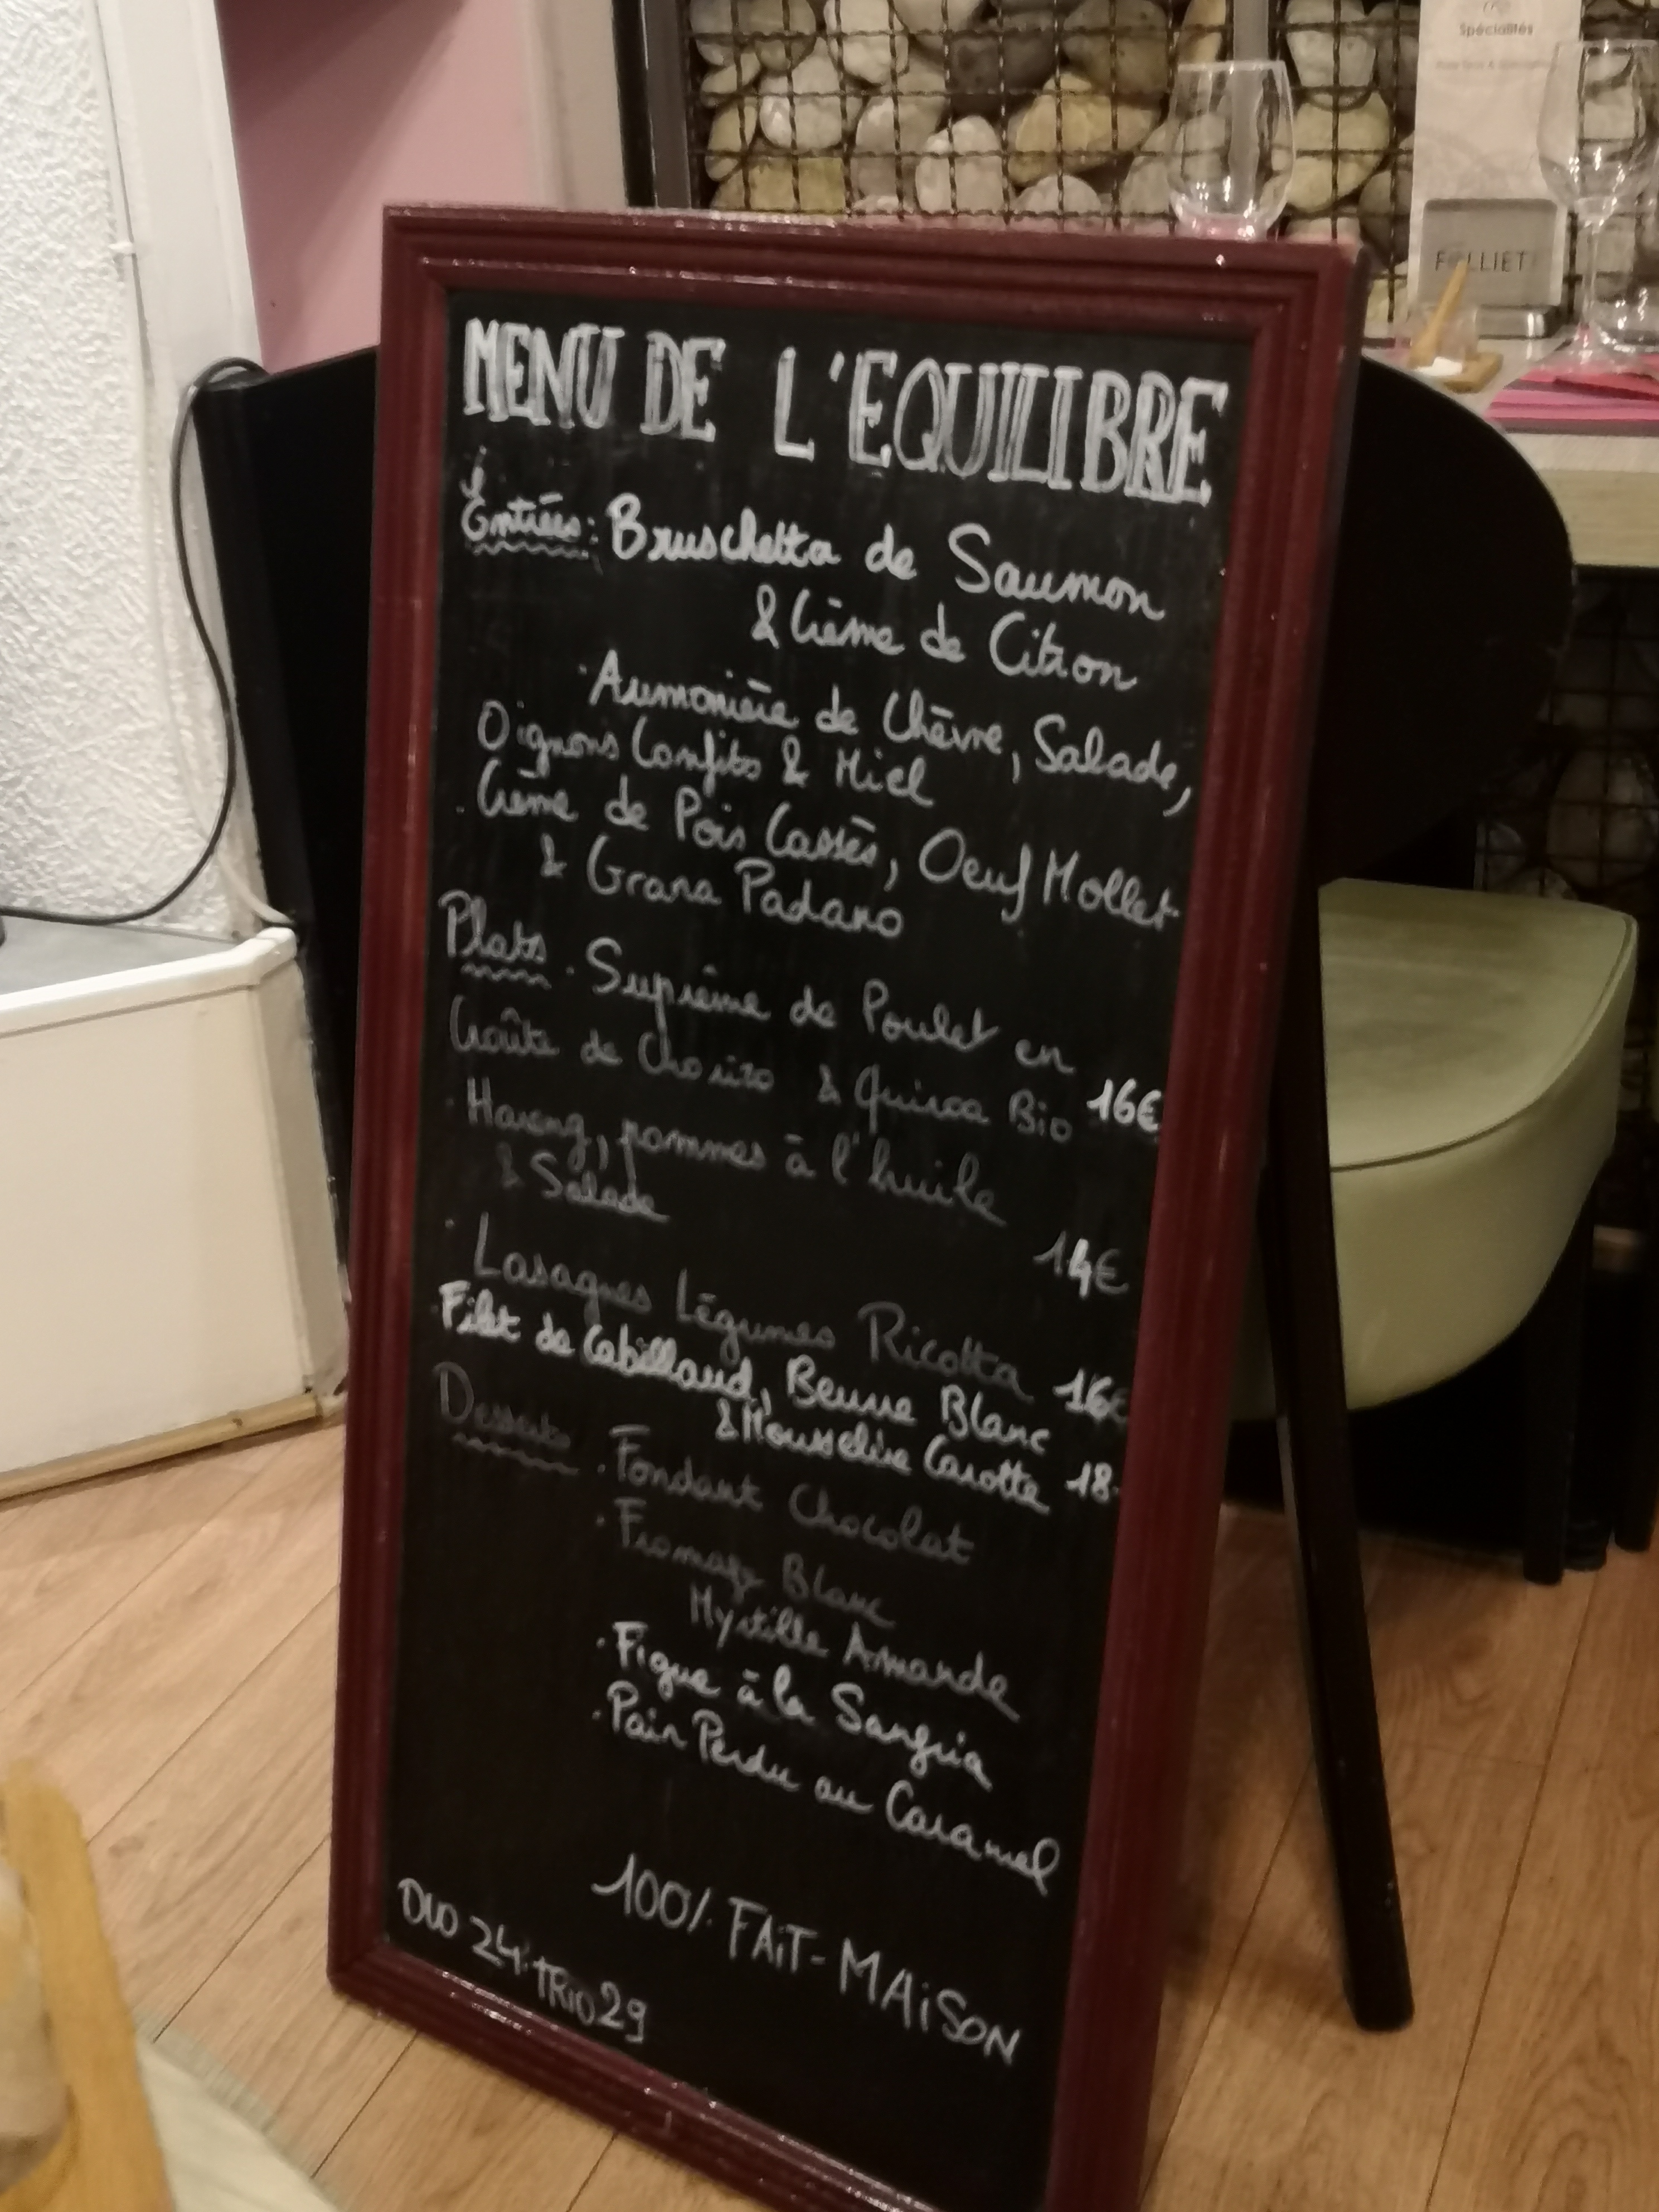 Spécialités
FOLLIET
MENU DE L'EQUILIBRE
Entrées: Bruschetta de Saumon
& Crème de Citron
. Aumonière de Chèvre, Salade,
Oignons Confits & Miel
. Crème de Pois Cassés, Oeuf Mollet
& Grana Padano
Plats . Suprême de Poulet en
Croûte de Chorizo & Quinoa Bio 16€
. Hareng, pommes à l'huile
& Salade
14€
. Lasagnes Légumes Ricotta 16€
. Filet de Cabillaud, Beurre Blanc
& Mousseline Carotte 18.
Desserts . Fondant Chocolat
. Fromage Blanc
Myrtille Amande
. Figue à la Sangria
. Pain Perdu au Caramel
100% FAiT-MAiSON
DUO 24. TRIO 29